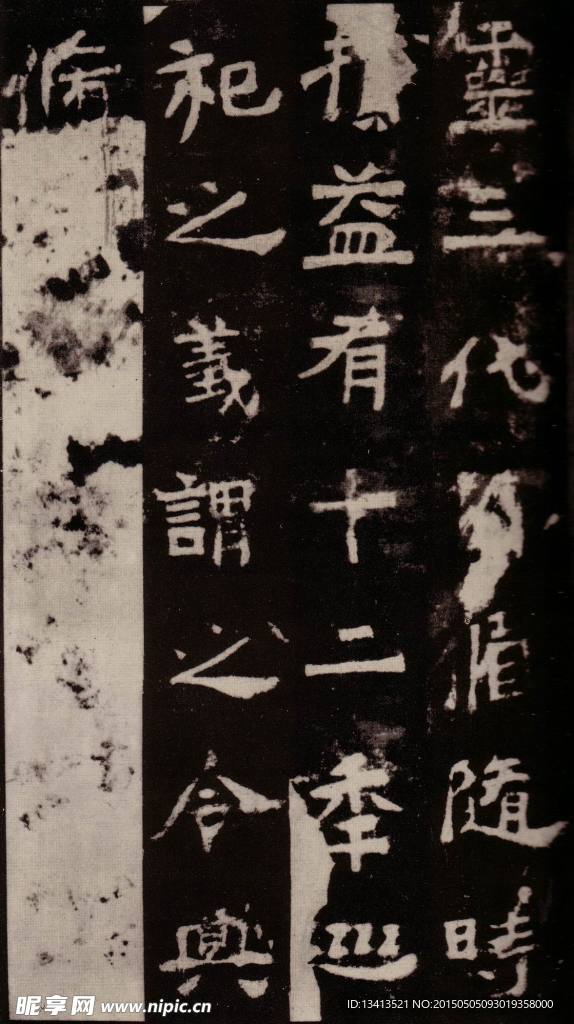 靈三代隨時
益有十二秊巡
祀之義謂之令典
昵享网 www.nipic.cn
ID:13413521 NO:20150505093019358000